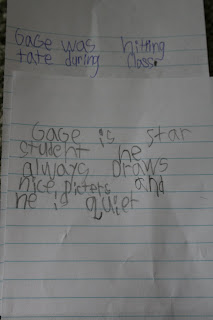 Gage was hitting
tate during class.
Gage is star
student he
always draws
nice picters and
he is quiet